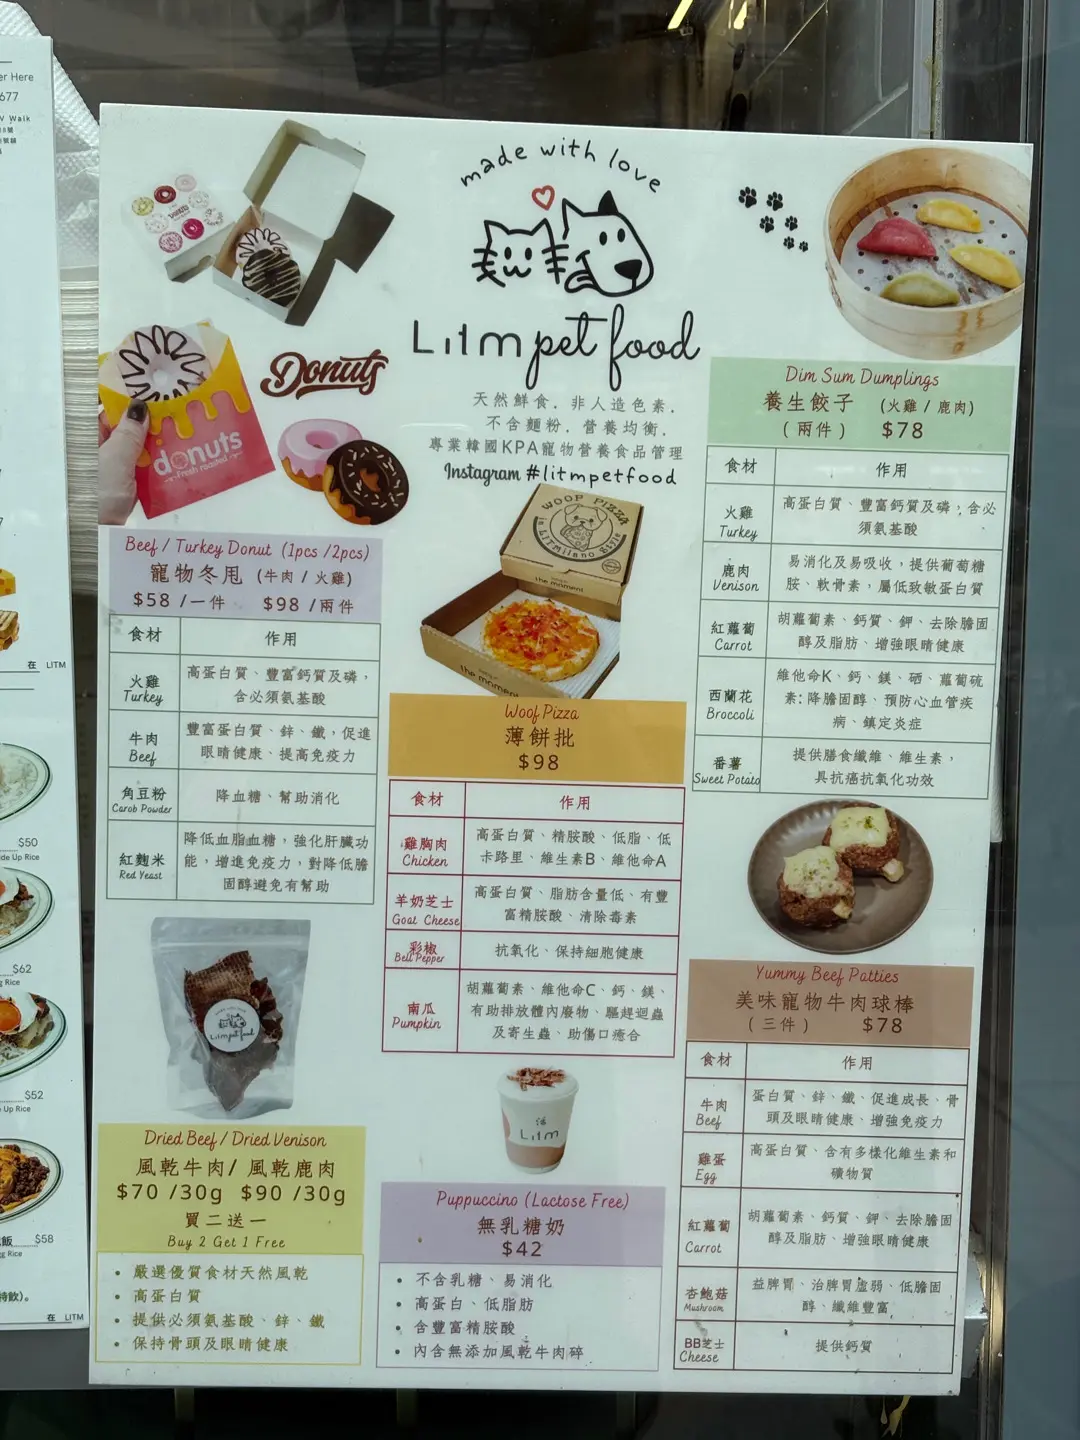 er Here
677
W Walk
made with love
Litm pet food
天然鮮食．非人造色素．
不含麵粉．營養均衡．
專業韓國KPA寵物營養食品管理
Instagram #litmpetfood
Donuts
donuts
Fresh roasted
Beef / Turkey Donut (1pcs /2pcs)
寵物冬甩 (牛肉 / 火雞)
$58 /一件 $98 /兩件
食材 作用
火雞 Turkey 高蛋白質、豐富鈣質及磷，
含必須氨基酸
牛肉 Beef 豐富蛋白質、鋅、鐵，促進
眼晴健康、提高免疫力
角豆粉 Carob Powder 降血糖、幫助消化
紅麴米 Red Yeast 降低血脂血糖，強化肝臟功
能，增進免疫力，對降低膽
固醇避免有幫助
Litm pet food
Dried Beef / Dried Venison
風乾牛肉/ 風乾鹿肉
$70 /30g $90 /30g
買二送一
Buy 2 Get 1 Free
• 嚴選優質食材天然風乾
• 高蛋白質
• 提供必須氨基酸、鋅、鐵
• 保持骨頭及眼晴健康
WOOF PIZZA
in LITMilano Style
the moment
the moment
Woof Pizza
薄餅批
$98
食材 作用
雞胸肉 Chicken 高蛋白質、精胺酸、低脂、低
卡路里、維生素B、維他命A
羊奶芝士 Goat Cheese 高蛋白質、脂肪含量低、有豐
富精胺酸、清除毒素
彩椒 Bell Pepper 抗氧化、保持細胞健康
南瓜 Pumpkin 胡蘿蔔素、維他命C、鈣、鎂、
有助排放體內廢物、驅趕迴蟲
及寄生蟲、助傷口癒合
Litm
Puppuccino (Lactose Free)
無乳糖奶
$42
• 不含乳糖、易消化
• 高蛋白、低脂肪
• 含豐富精胺酸
• 內含無添加風乾牛肉碎
Dim Sum Dumplings
養生餃子 (火雞 / 鹿肉)
(兩件) $78
食材 作用
火雞 Turkey 高蛋白質、豐富鈣質及磷，含必
須氨基酸
鹿肉 Venison 易消化及易吸收，提供葡萄糖
胺、軟骨素，屬低致敏蛋白質
紅蘿蔔 Carrot 胡蘿蔔素、鈣質、鉀、去除膽固
醇及脂肪、增強眼晴健康
西蘭花 Broccoli 維他命K、鈣、鎂、硒、蘿蔔硫
素: 降膽固醇、預防心血管疾
病、鎮定炎症
番薯 Sweet Potato 提供膳食纖維、維生素，
具抗癌抗氧化功效
Yummy Beef Patties
美味寵物牛肉球棒
(三件) $78
食材 作用
牛肉 Beef 蛋白質、鋅、鐵、促進成長、骨
頭及眼晴健康、增強免疫力
雞蛋 Egg 高蛋白質、含有多樣化維生素和
礦物質
紅蘿蔔 Carrot 胡蘿蔔素、鈣質、鉀、去除膽固
醇及脂肪、增強眼晴健康
杏鮑菇 Mushroom 益脾胃、治脾胃虛弱、低膽固
醇、纖維豐富
BB芝士 Cheese 提供鈣質
在 LITM
$50
de Up Rice
$62
g Rice
$52
Up Rice
飯 $58
g Rice
特飲)。
在 LITM